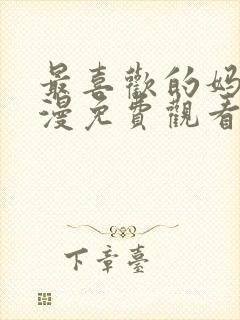 最喜歡的妈
漫免費觀看
下章臺